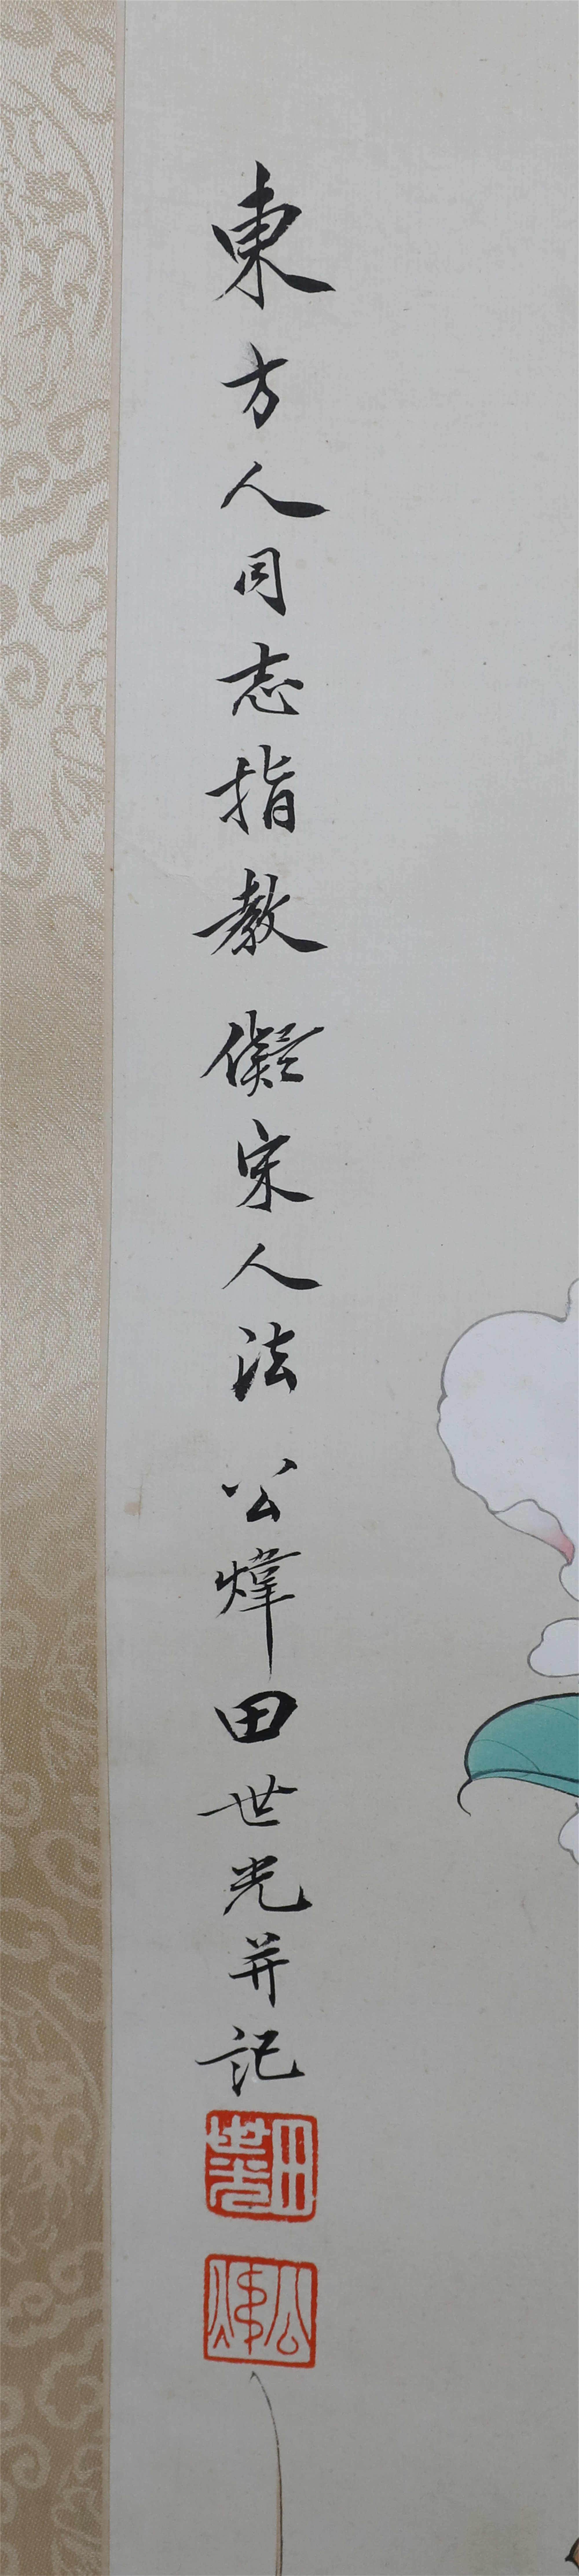 東方人同志指教 儗宋人法 公煒田世光并記
田世光
公煒